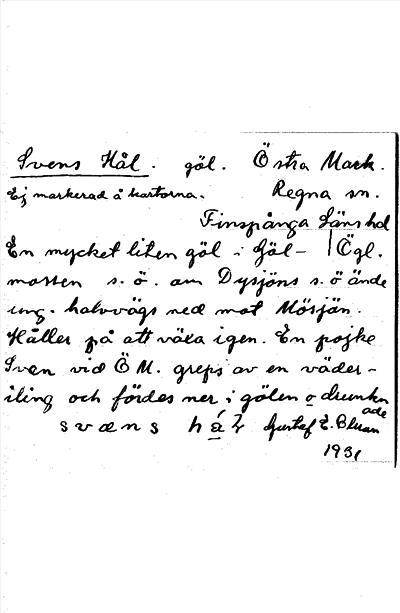 Svens Hål. göl. Östra Mark.
Ej markerad å kartorna. Regna sn.
Finspånga Läns hd
En mycket liten göl i Göl- Ögl.
mossen s.ö. om Dysjöns s.ö ände
ung. halvvägs ned mot Mösjön.
Håller på att växa igen. En pojke
Sven vid Ö M. greps av en väder-
iling och fördes ner i gölen o drunkn
ade
svæns
Gustaf E.
1931